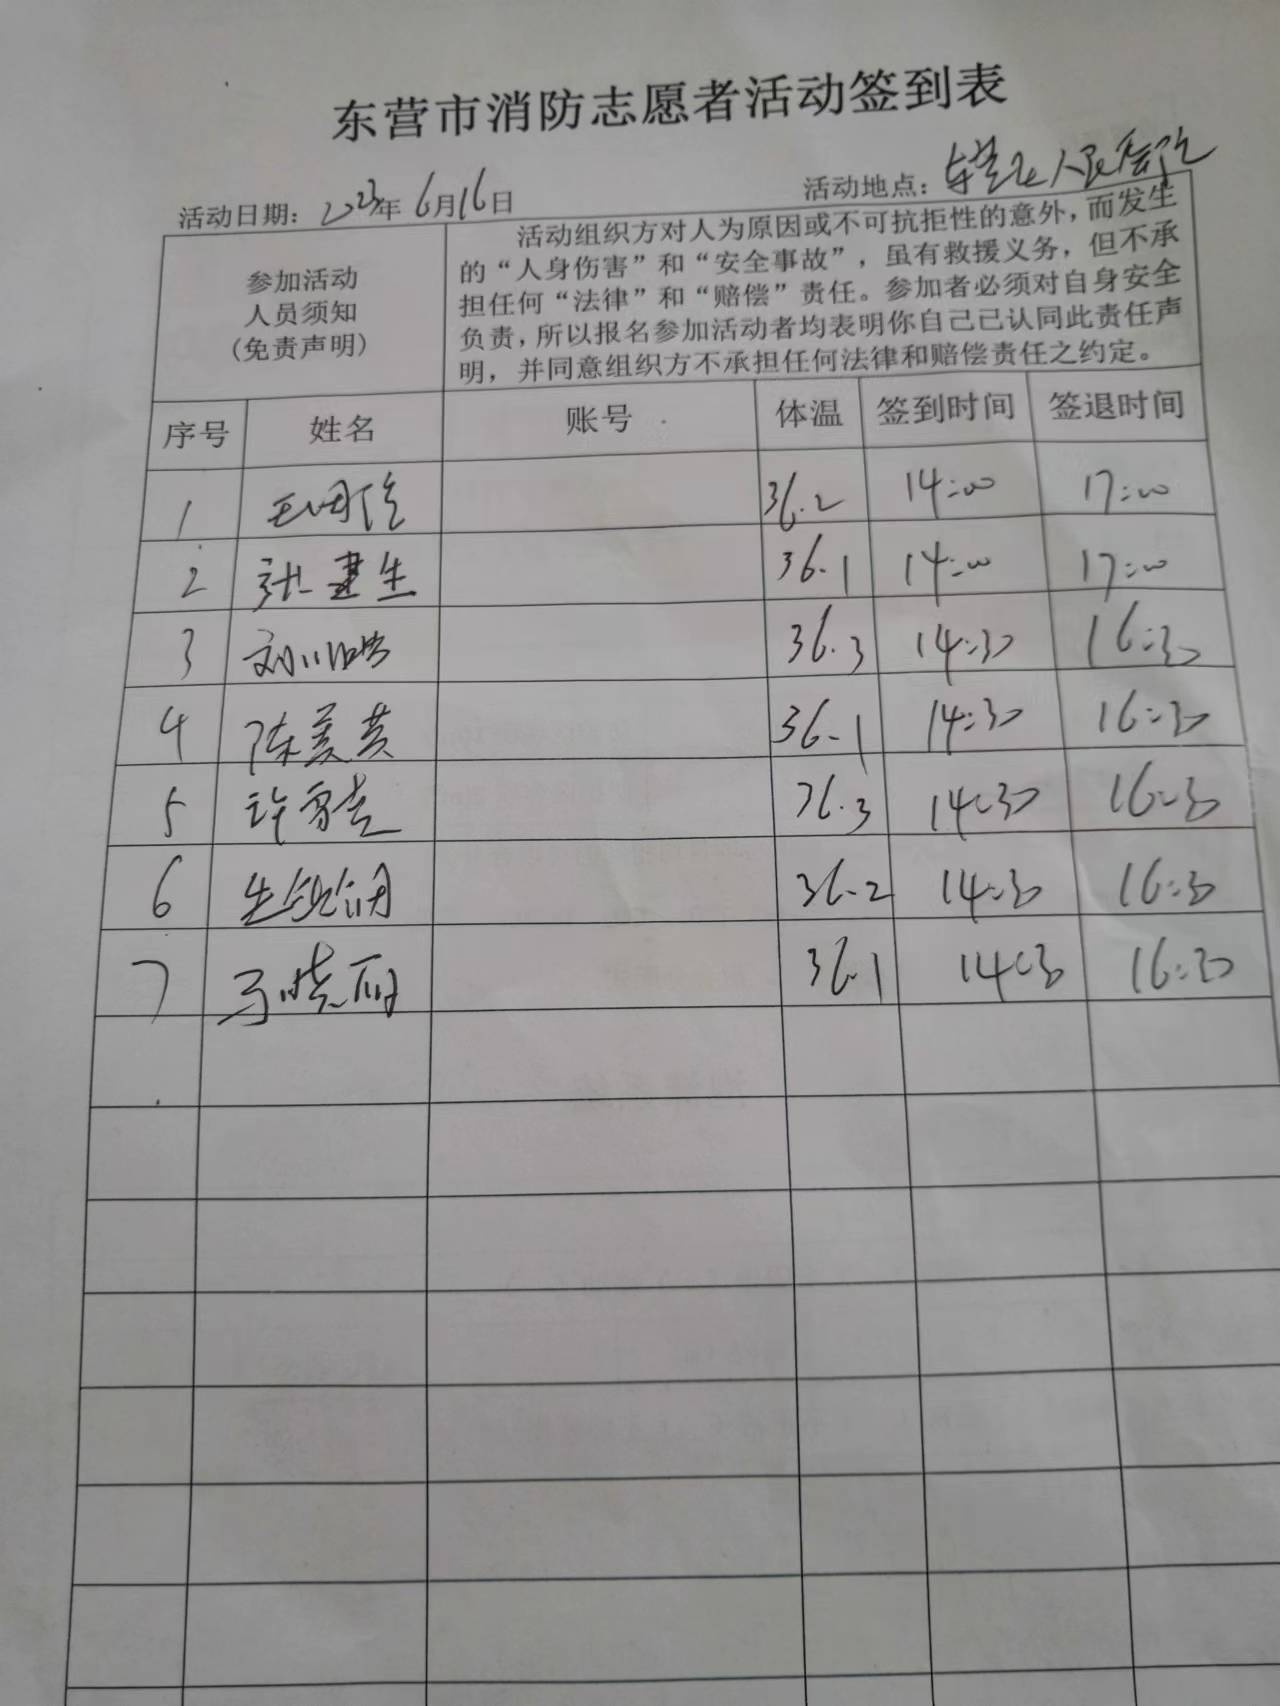 东营市消防志愿者活动签到表
活动日期: 2023年6月16日 活动地点: 人民医院
参加活动
人员须知
(免责声明)
活动组织方对人为原因或不可抗拒性的意外，而发生
的“人身伤害”和“安全事故”，虽有救援义务，但不承
担任何“法律”和“赔偿”责任。参加者必须对自身安全
负责，所以报名参加活动者均表明你自己已认同此责任声
明，并同意组织方不承担任何法律和赔偿责任之约定。
序号 姓名 账号 体温 签到时间 签退时间
1 36.2 14:00 17:00
2 张建生 36.1 14:00 17:00
3 36.3 14:30 16:30
4 陈美英 36.1 14:30 16:30
5 36.3 14:30 16:30
6 36.2 14:30 16:30
7 马晓丽 36.1 14:30 16:30